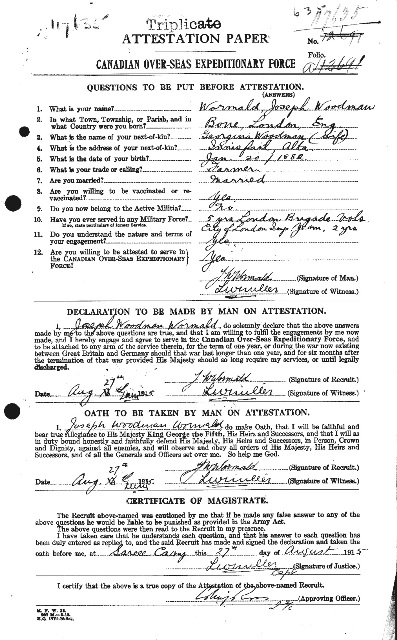 Triplicate
ATTESTATION PAPER
No.
CANADIAN OVER-SEAS EXPEDITIONARY FORCE
Folio.
QUESTIONS TO BE PUT BEFORE ATTESTATION.
(ANSWERS)
1. What is your name? Wormald, Joseph Woodman
2. In what Town, Township, or Parish, and in
what Country were you born? London, Eng
3. What is the name of your next-of-kin? Georgina Woodman (Wife)
4. What is the address of your next-of-kin? Innisfail, Alta
5. What is the date of your birth? Jan 20/1882
6. What is your trade or calling? Farmer
7. Are you married? Married
8. Are you willing to be vaccinated or re-
vaccinated? Yes
9. Do you now belong to the Active Militia? No
10. Have you ever served in any Military Force? 5 yrs London Brigade Vols
If so, state particulars of former Service. City of London Imp Yeom, 2 yrs
11. Do you understand the nature and terms of
your engagement? Yes
12. Are you willing to be attested to serve in
the CANADIAN OVER-SEAS EXPEDITIONARY
FORCE? Yes
J W Wormald (Signature of Man.)
(Signature of Witness.)
DECLARATION TO BE MADE BY MAN ON ATTESTATION.
I, Joseph Woodman Wormald, do solemnly declare that the above answers
made by me to the above questions are true, and that I am willing to fulfil the engagements by me now
made, and I hereby engage and agree to serve in the Canadian Over-Seas Expeditionary Force, and
to be attached to any arm of the service therein, for the term of one year, or during the war now existing
between Great Britain and Germany should that war last longer than one year, and for six months after
the termination of that war provided His Majesty should so long require my services, or until legally
discharged.
J W Wormald (Signature of Recruit.)
Date Aug. 27th 1915 (Signature of Witness.)
OATH TO BE TAKEN BY MAN ON ATTESTATION.
I, Joseph Woodman Wormald, do make Oath, that I will be faithful and
bear true Allegiance to His Majesty King George the Fifth, His Heirs and Successors, and that I will as
in duty bound honestly and faithfully defend His Majesty, His Heirs and Successors, in Person, Crown
and Dignity, against all enemies, and will observe and obey all orders of His Majesty, His Heirs and
Successors, and of all the Generals and Officers set over me. So help me God.
J W Wormald (Signature of Recruit.)
Date Aug. 27th 1915 (Signature of Witness.)
CERTIFICATE OF MAGISTRATE.
The Recruit above-named was cautioned by me that if he made any false answer to any of the
above questions he would be liable to be punished as provided in the Army Act.
The above questions were then read to the Recruit in my presence.
I have taken care that he understands each question, and that his answer to each question has
been duly entered as replied to, and the said Recruit has made and signed the declaration and taken the
oath before me, at Sarcee Camp this 27th day of August 1915
(Signature of Justice.)
I certify that the above is a true copy of the Attestation of the above-named Recruit.
(Approving Officer.)